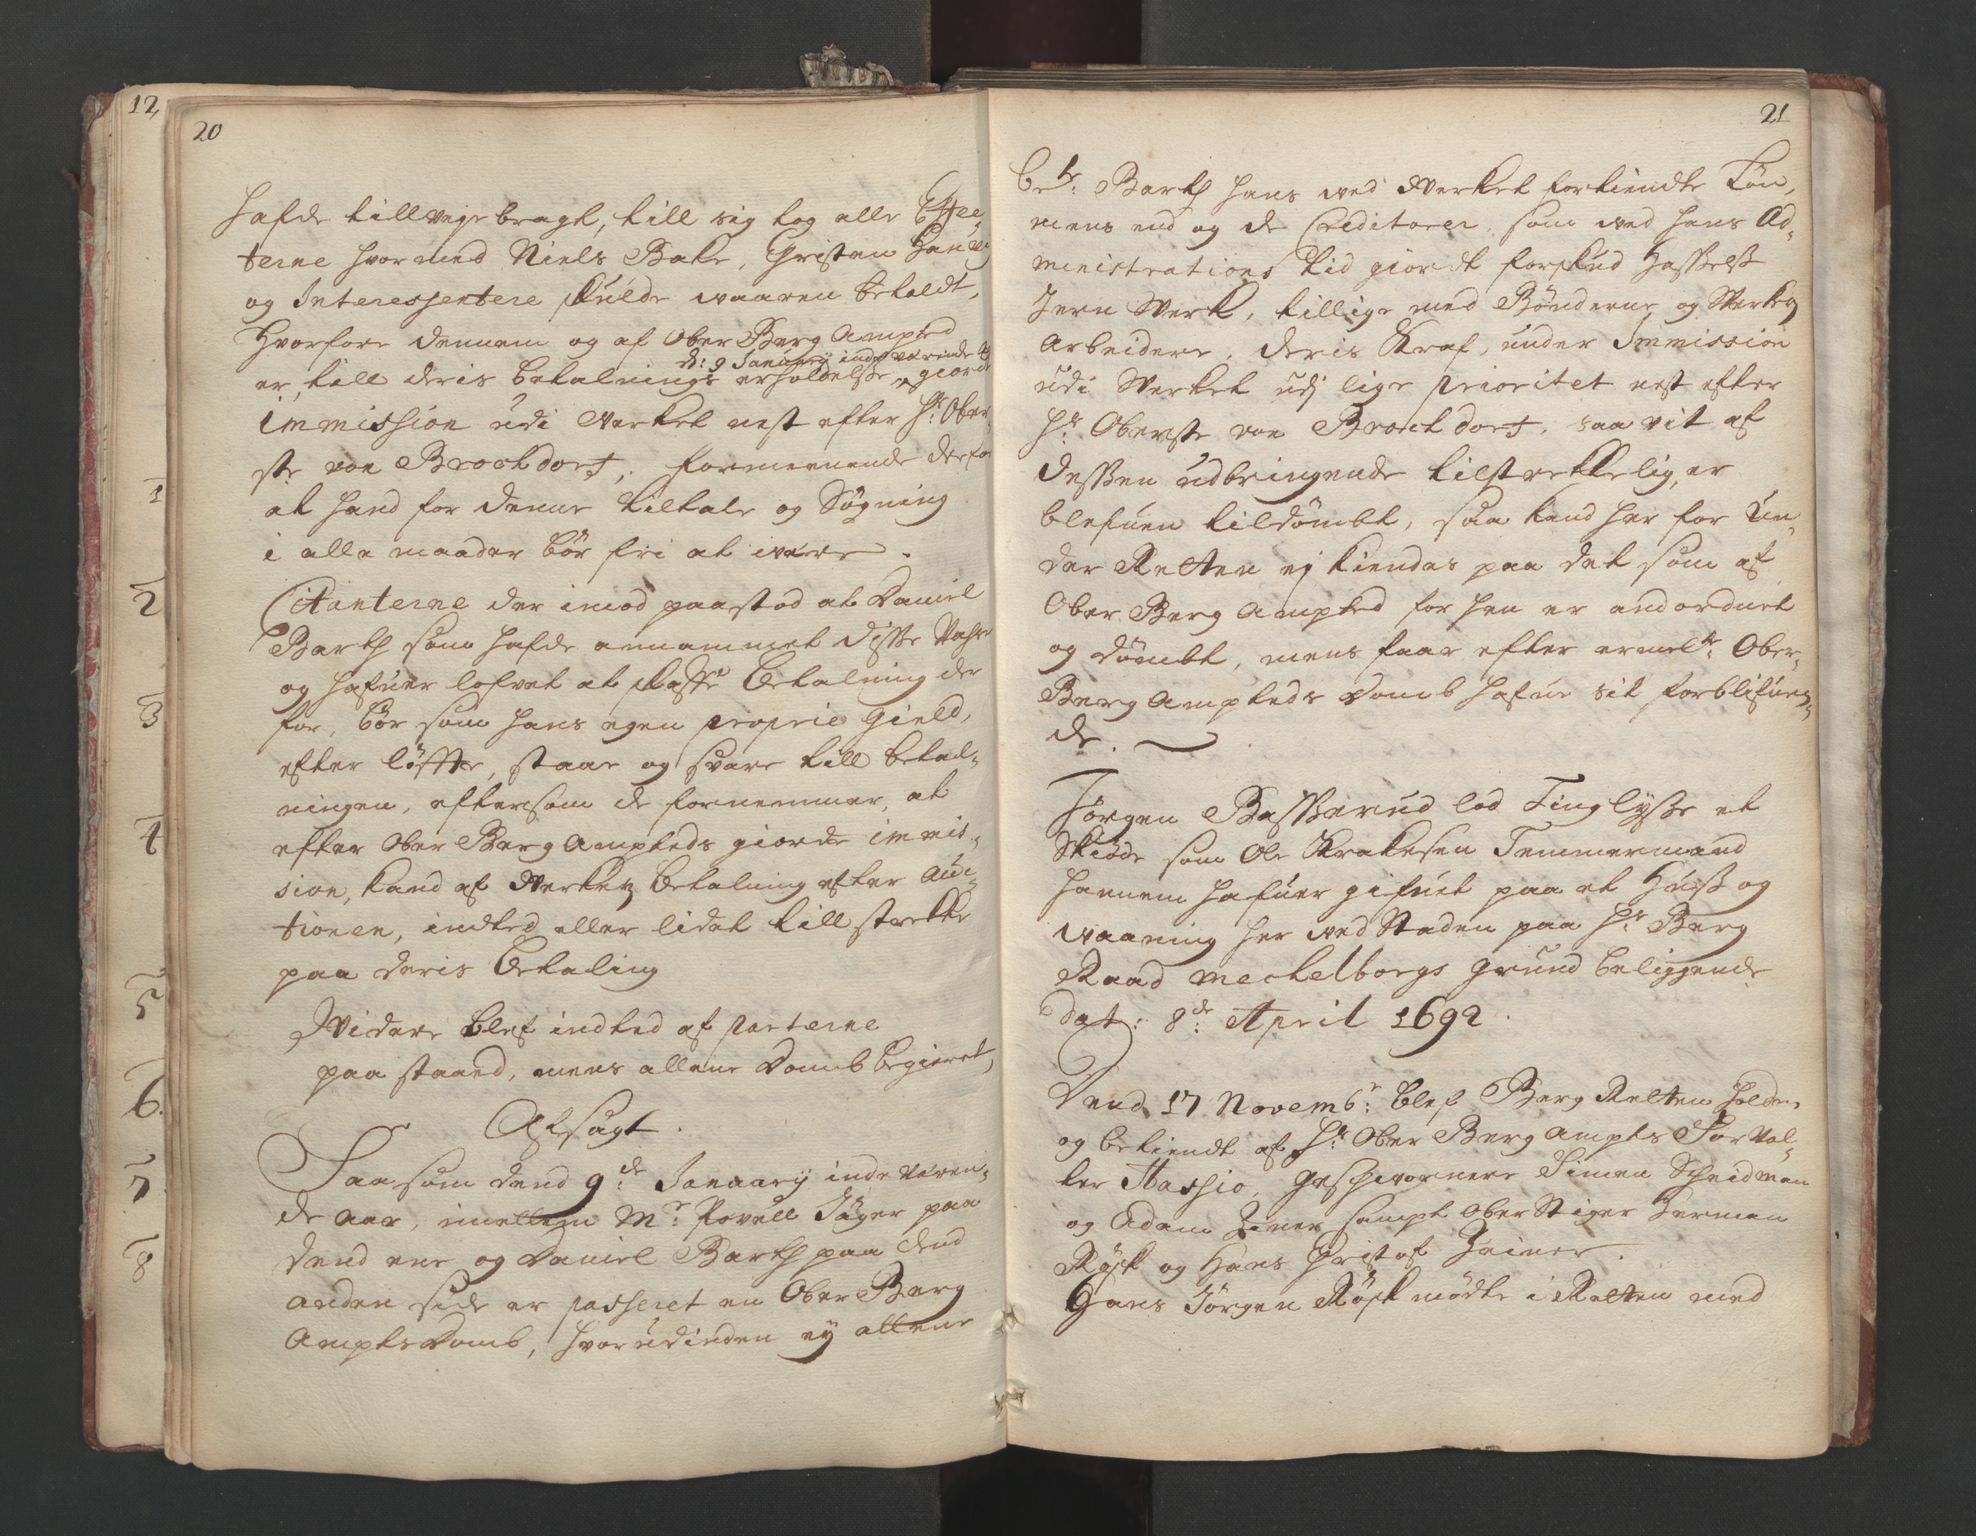 12,
20
hafde tillveye bragt, till sig tog alle Effec-
terne hvormed Niels Bake, Christen
og Interessentere skulde waaren betaldt,
Hvorfore dennem og af Ober Berg Amptet
d: 9 January indeværende
er, till deris betalnings erholdelse, giorde
immission udi Verket nest efter Hr: Ober-
ste von Brochdorf, formeenende derfor
at hand for denne tiltale og Søgning
i alle maader bør fri at være.
Citanterne der imod paastod at Daniel
Barth som hafde annammet disse Vahre
og hafuer lofvet at skaffe betalning der
for, bør som hans egen proprie gield,
efter løffte, staae og svare till betal-
ningen, eftersom de fornemmer, at
efter Ober Berg Ampteds giorde immis-
sion, kand af Verketz betalning efter Auc-
tionen, indted eller lidet till strekke
paa deris betaling
Widere blef indted af parterne
paa staaed, mens allene Domb begieret,
Afsagt.
Saa som dend 9de: January inde væren-
de aar, imellem Mr: Povell Jæger paa
dend ene og Daniel Barth paa dend
anden side er passeret en Ober Berg
Ampts Domb, hvorudinden ey allene
1
2
3
4
5
6.
7.
8
21
bete: Barth hans ved Werket fortiendte Løn,
mens end og de Creditorer, som ved hans Ad-
ministrations tid giordt forskud Hassels
Jern Werk, tillige med Bønderne og Werketz
Arbeidere, deris Kraf, under Immission
udi Werket udj lige prioritet nest efter
Hr: Oberste von Brochdorf, saa vit af
dessen udbringende tilstrekkelig, er
blefuen tildømbt, saa kand her for Un-
der Retten ej kiendes paa det som af
Ober Berg Ampted for hen er andordnet
og dømbt, mens faar efter ermelte: Ober-
Berg Ampteds Domb hafue sit forblifuen-
de.
Jørgen Basserud lod Tinglysse et
Skiøde som Ole Krakesen Temmermand
hannem hafuer gifuet paa et Huus og
waaning her ved Staden paa Hr: Berg
Raad Mechelborgs grund beliggende
Dat: 8de: April 1692.
Dend 17 Novembr: blef Berg Retten holden
og betiendt af Hr: Ober Berg Ampts For Val-
ter Hassio, Geschwornere Simen Schmidman
og Adam Ziener sampt Ober Stiger Herman
Røsk og Hans Christof Heiner.
Hans Jørgen Røsk mødte i Retten med